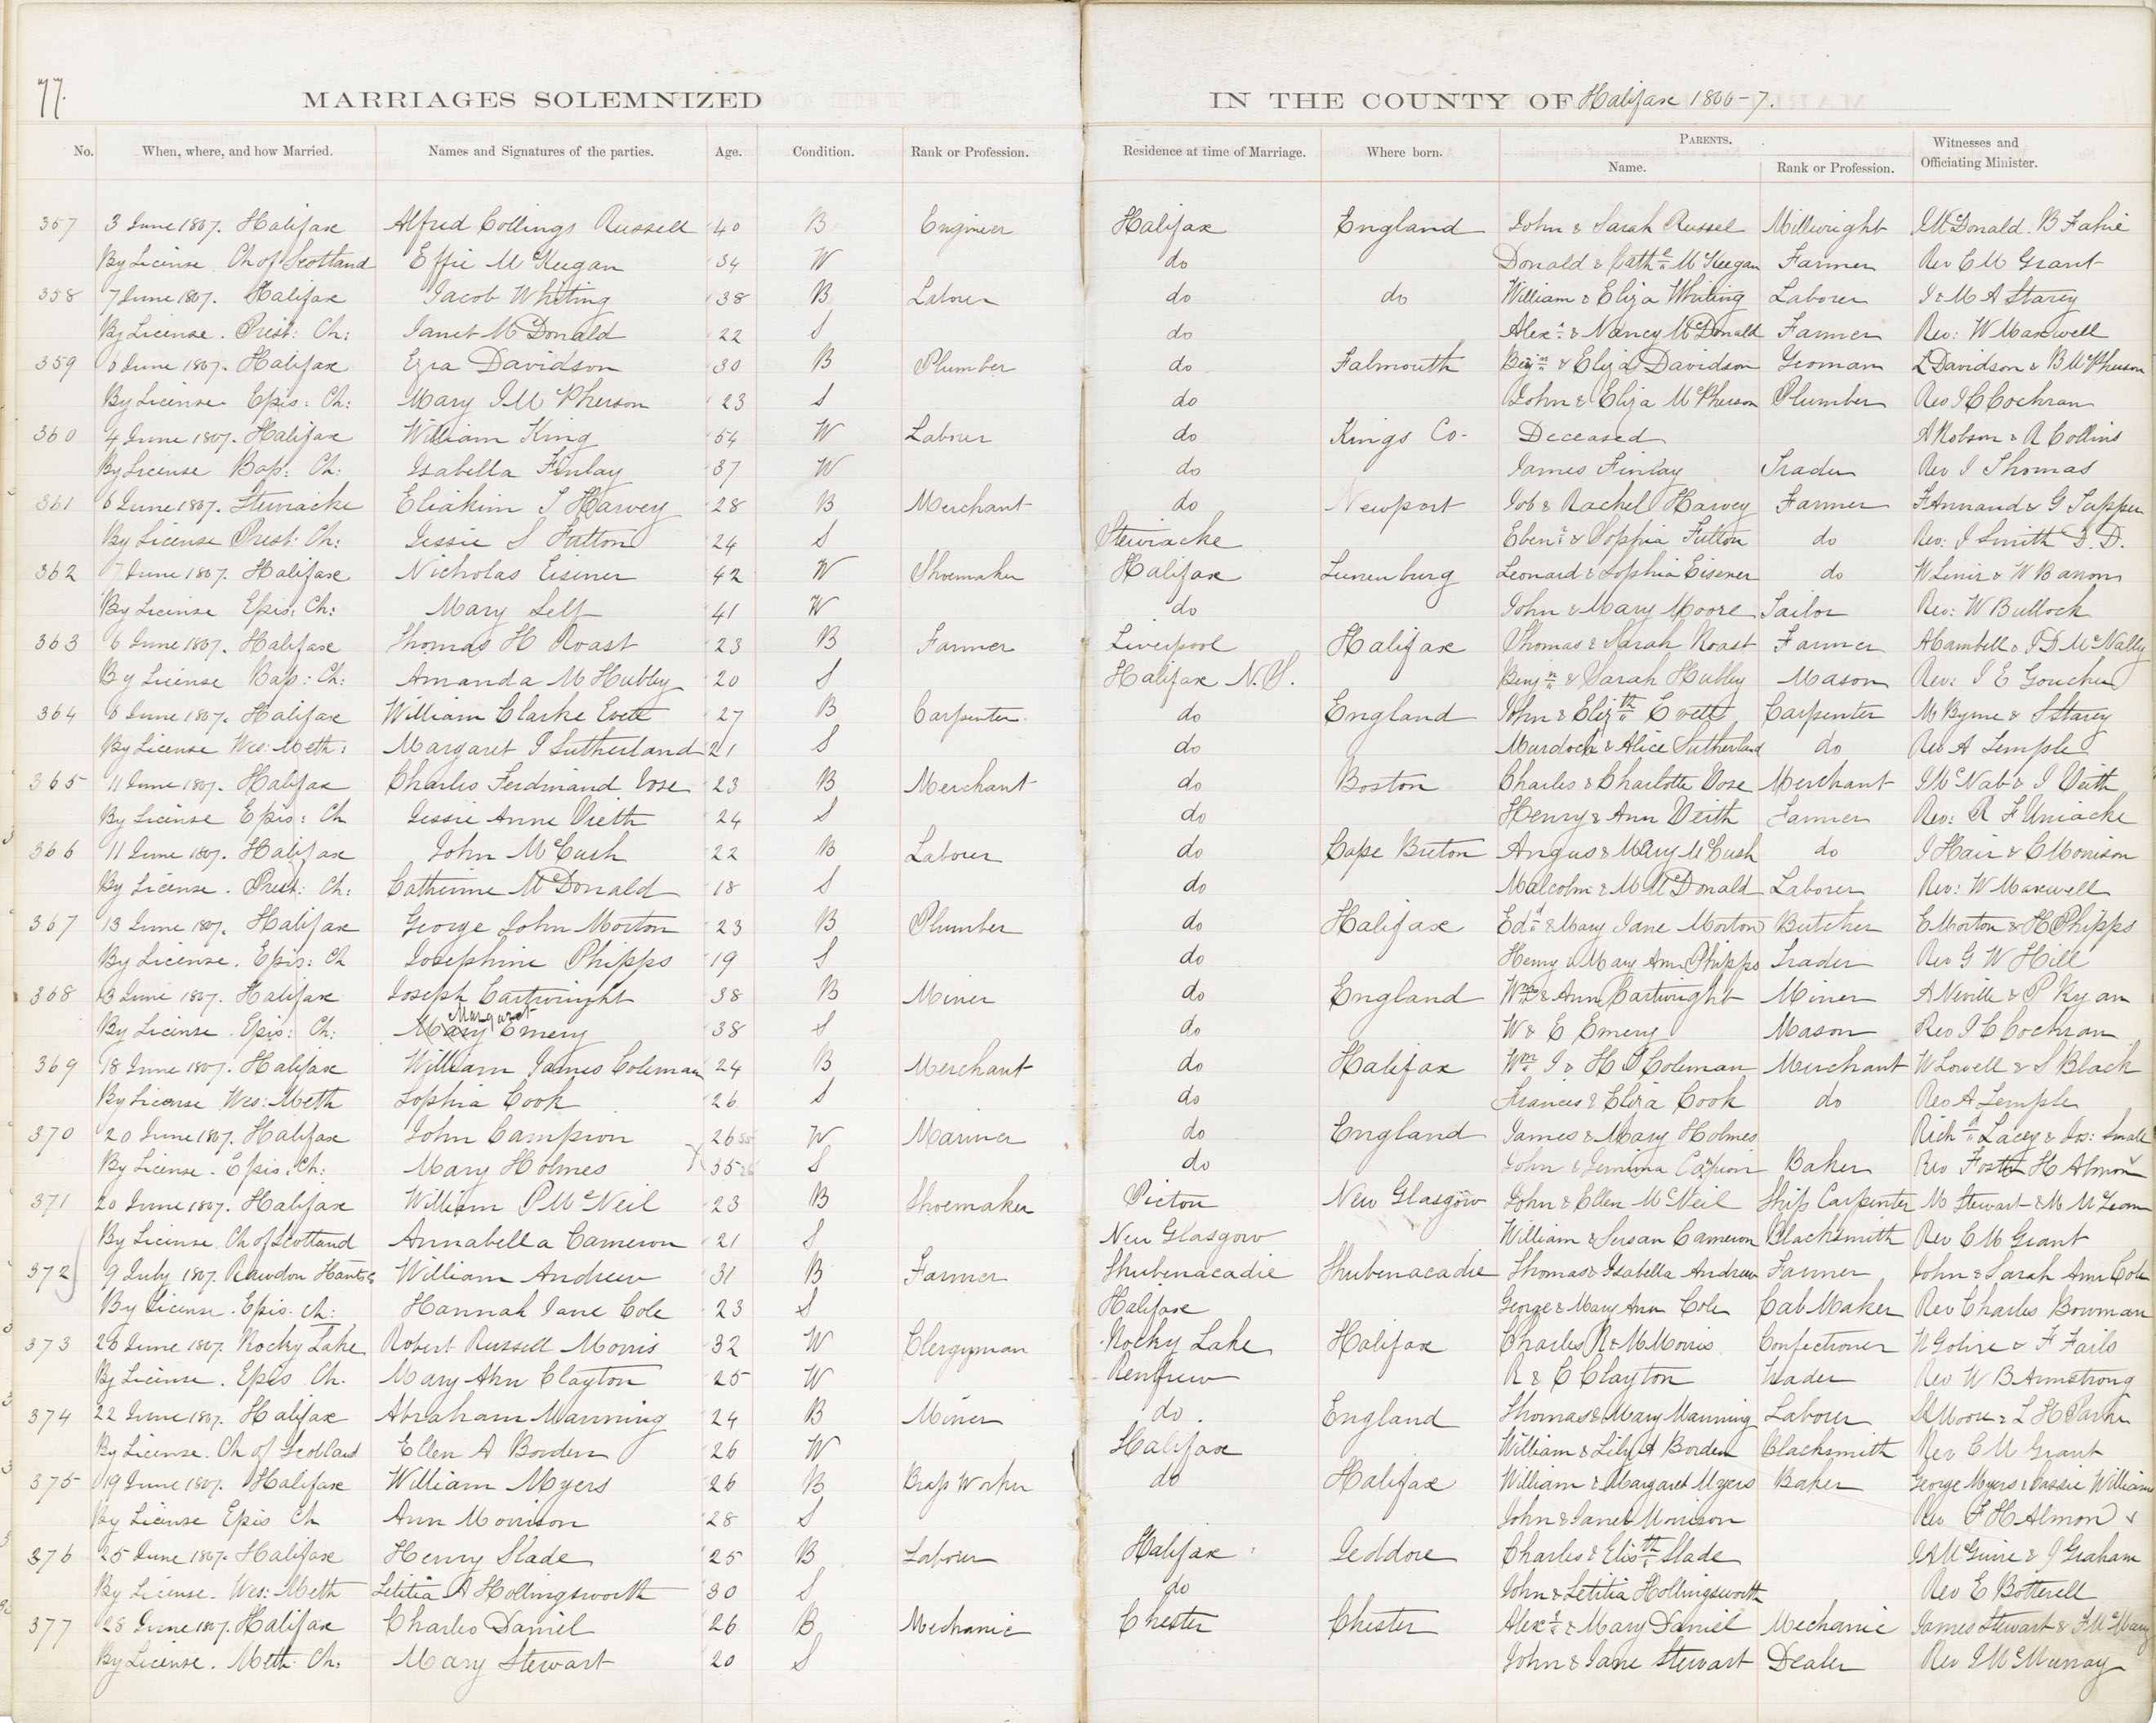 77.
MARRIAGES SOLEMNIZED IN THE COUNTY OF Halifax 1866-7.
No. When, where, and how Married. Names and Signatures of the parties. Age. Condition. Rank or Profession. Residence at time of Marriage. Where born. PARENTS. Name. Rank or Profession. Witnesses and Officiating Minister.
357 3 June 1867. Halifax Alfred Collings Russell 40 B Engineer Halifax England John & Sarah Russel Millwright J McDonald. B Fahie
By License Ch of Scotland Effie McKeegan 34 W do Donald & Cathe McKeegan Farmer Rev C M Grant
358 7 June 1867. Halifax Jacob Whiting 38 B Laborer do do William & Eliza Whiting Laborer J & M A Starey
By License. Prest: Ch: Janet McDonald 22 S do Alexr & Nancy McDonald Farmer Rev: W Maxwell
359 6 June 1867. Halifax Ezra Davidson 30 B Plumber do Falmouth Benjn & Eliza Davidson Yeoman L Davidson & B McPherson
By License Epis: Ch: Mary J McPherson 23 S do John & Eliza McPherson Plumber Rev J C Cochran
360 4 June 1867. Halifax William King 54 W Laborer do Kings Co- Deceased A Robson & R Collins
By License Bap: Ch: Isabella Finlay 37 W do James Finlay Trader Rev J Thomas
361 6 June 1867. Stewiacke Eliakim T Harvey 28 B Merchant do Newport Job & Rachel Harvey Farmer F Annand & G Tupper
By License Prest: Ch: Jessie S Fulton 24 S Stewiacke Ebenr & Sophia Fulton do Rev: J Smith D. D.
362 7 June 1867. Halifax Nicholas Eisener 42 W Shoemaker Halifax Lunenburg Leonard & Sophia Eisener do W Lenir & W Banon
By License Epis: Ch: Mary Self 41 W do John & Mary Moore Tailor Rev: W Bullock
363 6 June 1867. Halifax Thomas H Roast 23 B Farmer Liverpool Halifax Thomas & Sarah Roast Farmer A Cambell & P D McNally
By License Bap: Ch: Amanda M Hubley 20 S Halifax N.S. Benjn & Sarah Hubley Mason Rev: J E Goucher
364 6 June 1867. Halifax William Clarke Evett 27 B Carpenter do England John & Elizth Evett Carpenter M Byrne & S Starey
By License Wes: Meth: Margaret J Sutherland 21 S do Murdoch & Alice Sutherland do Rev A Temple
365 11 June 1867. Halifax Charles Ferdinand Vose 23 B Merchant do Boston Charles & Charlotte Vose Merchant J McNab & J Veith
By License Epis: Ch Jessie Anne Vieth 24 S do Henry & Ann Veith Farmer Rev: R F Uniacke
366 11 June 1867. Halifax John McCush 22 B Laborer do Cape Breton Angus & Mary McCush do J Hair & C Morrison
By License. Prest: Ch: Catherine McDonald 18 S do Malcolm & M McDonald Laborer Rev: W Maxwell
367 13 June 1867. Halifax George John Morton 23 B Plumber do Halifax Edd & Mary Jane Morton Butcher E Morton & H Phipps
By License. Epis: Ch Josephine Phipps 19 S do Henry & Mary Ann Phipps Trader Rev G W Hill
368 13 June 1867. Halifax Joseph Cartwright 38 B Miner do England Wm & Ann Cartwright Miner A Neville & P Ryan
By License. Epis: Ch: Mary Margaret Emery 38 S do W & E Emery Mason Rev J C Cochran
369 18 June 1867. Halifax William James Coleman 24 B Merchant do Halifax Wm J & H S Coleman Merchant W Lowell & S Black
By License Wes: Meth Sophia Cook 26 S do Francis & Eliza Cook do Rev A Temple
370 20 June 1867. Halifax John Campion 26 W Mariner do England James & Mary Holmes Richd Lacey & Jos: Small
By License. Epis: Ch: Mary Holmes 35 S do John & Jemima Capion Baker Rev Foster H Almon
371 20 June 1867. Halifax William P McNeil 23 B Shoemaker Picton New Glasgow John & Ellen McNeil Ship Carpenter M Stewart & M McLeom
By License Ch of Scotland Annabella Cameron 21 S New Glasgow William & Susan Cameron Blacksmith Rev C M Grant
372 9 July 1867. Rawdon Hants William Andrew 31 B Farmer Shubenacadie Shubenacadie Thomas & Isabella Andrew Farmer John & Sarah Ann Cole
By License. Epis. Ch: Hannah Jane Cole 23 S Halifax George & Mary Ann Cole Cab Maker Rev Charles Bowman
373 26 June 1867. Rocky Lake Robert Russell Morris 32 W Clergyman Rocky Lake Halifax Charles R & M Morris Confectioner N Golire & F Fails
By License. Epis Ch. Mary Ann Clayton 25 W Renfrew R & C Clayton Trader Rev W B Armstrong
374 22 June 1867. Halifax Abraham Manning 24 B Miner do. England Thomas & Mary Manning Laborer M Moore & L H Parker
By License. Ch of Scotland Ellen A Borden 26 W Halifax William & Lily A Borden Blacksmith Rev C M Grant
375 19 June 1867. Halifax William Myers 26 B Brass Worker do Halifax William & Margaret Myers Baker George Myers & Cassie Williams
By License Epis Ch Ann Morrison 28 S John & Janet Morrison Rev F H Almon
376 25 June 1867. Halifax Henry Slade 25 B Laborer Halifax Jeddore Charles & Elisth Slade J A McGuire & J Graham
By License. Wes: Meth Letitia A Hollingsworth 30 S do John & Letitia Hollingsworth Rev E Botterell
377 28 June 1867. Halifax Charles Daniel 26 B Mechanic Chester Chester Alexr & Mary Daniel Mechanic James Stewart &
By License. Meth Ch: Mary Stewart 20 S John & Jane Stewart Dealer Rev J McMurray